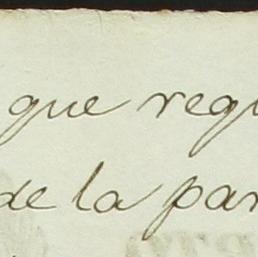 que requ
de la par